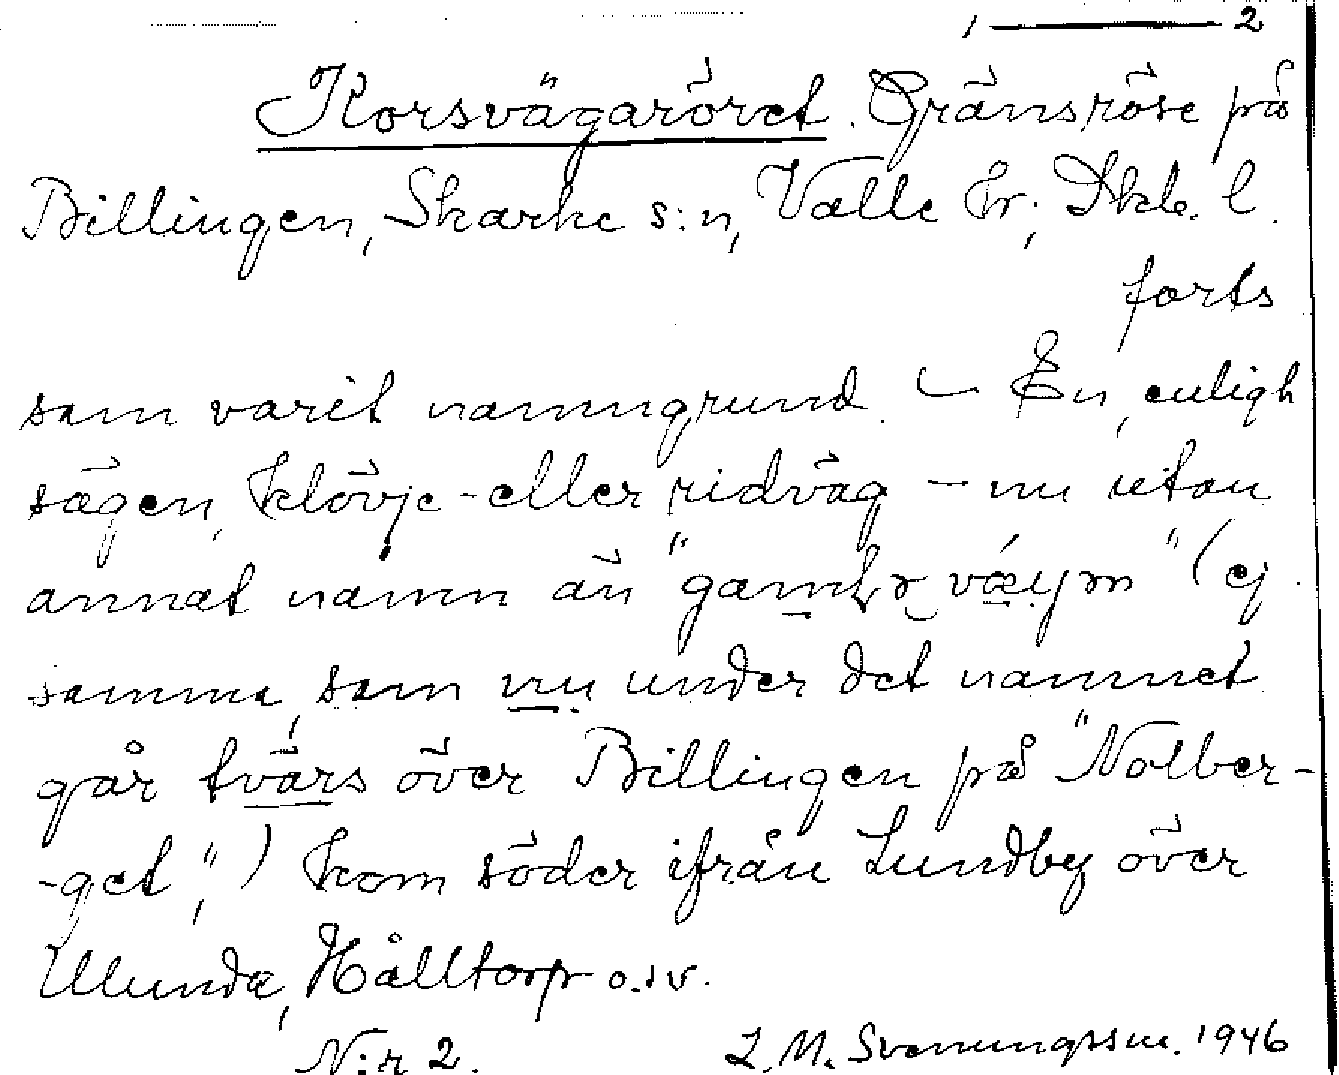 1 ——— 2
Korsvägaröret. Gränsröse på
Billingen, Skarke s:n, Valle hr; Skb. l.
forts
som varit namngrund. – En, enligt
sägen, klövje- eller ridväg – nu utan
annat namn än " " (ej
samma, som nu under det namnet
går tvärs över Billingen på "Nolber-
-get",) kom söder ifrån Lundby över
Ulunda, Hålltorp o.s.v.
N:r 2. L. M. Svenungsson. 1946